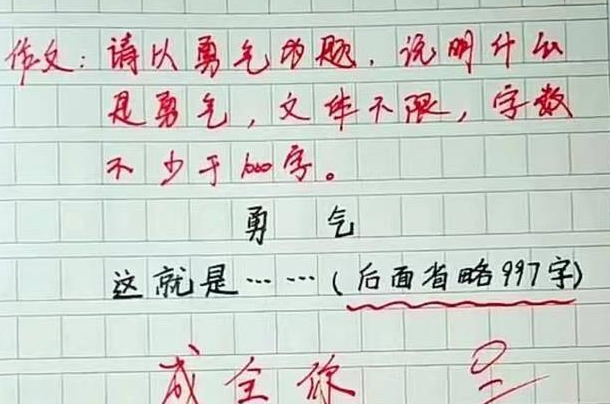 作文：请以勇气为题，说明什么
是勇气，文体不限，字数
不少于1000字。
勇 气
这就是……（后面省略997字）
成全你 0